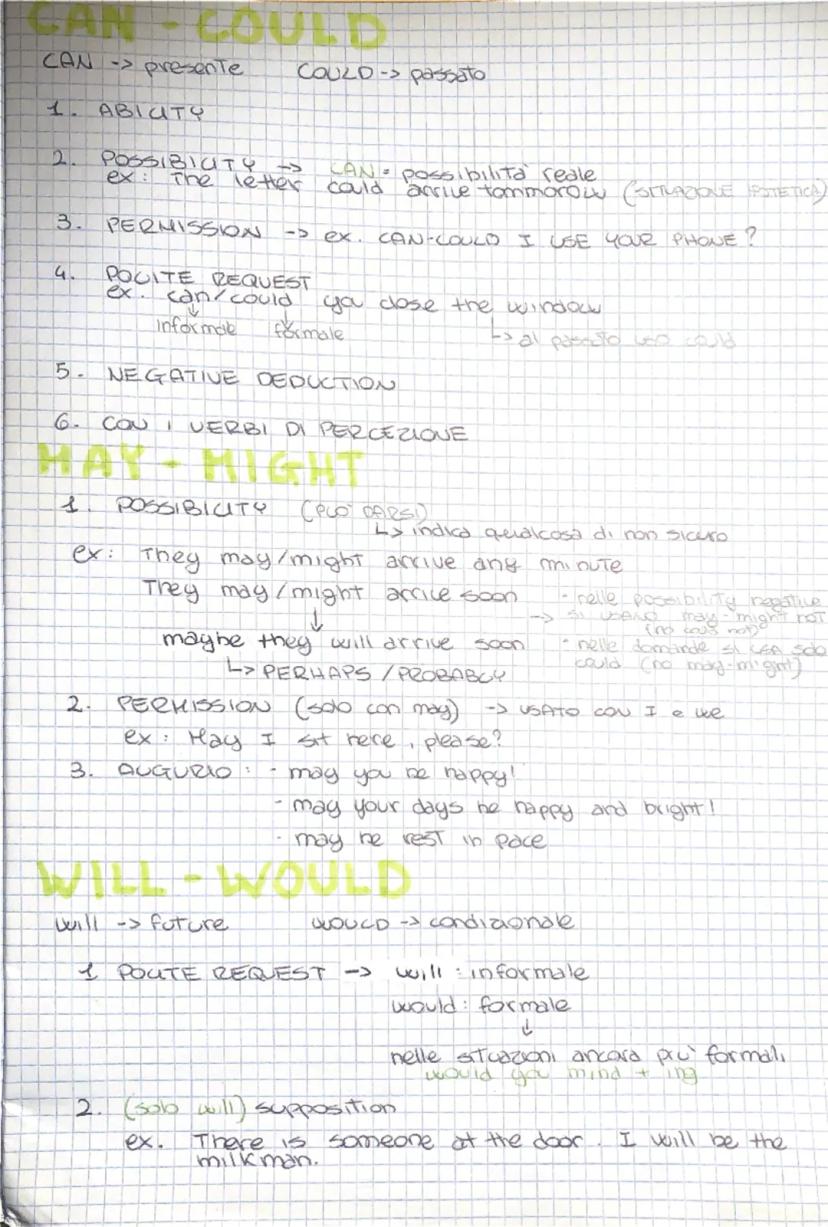 CAN - COULD
CAN -> presente COULD -> passato
1. ABILITY
2. POSSIBILITY -> CAN = possibilità reale
ex: The letter could arrive tommorow (SITUAZIONE IPOTETICA)
3. PERMISSION -> ex. CAN-COULD I USE YOUR PHONE?
4. POLITE REQUEST
ex. can/could you close the window
↓ ↓
informale formale ↳ al passato uso could
5. NEGATIVE DEDUCTION
6. CON I VERBI DI PERCEZIONE
MAY - MIGHT
1. POSSIBILITY (PUÒ DARSI)
↳ indica qualcosa di non sicuro
ex: They may/might arrive any minute
They may/might arrive soon
↓
maybe they will arrive soon
↳ PERHAPS / PROBABLY
- nelle possibility negative
-> si usano may-might not
(no could not)
- nelle domande si usa solo
could (no may-might)
2. PERMISSION (solo con may) -> USATO CON I e we
ex: May I sit here, please?
3. AUGURIO: - may you be happy!
- may your days be happy and bright!
- may he rest in pace
WILL - WOULD
will -> future WOULD -> condizionale
1 POLITE REQUEST -> will: informale
would: formale
↓
nelle situazioni ancora più formali
would you mind + ing
2. (solo will) supposition
ex. There is someone at the door. I will be the
milkman.